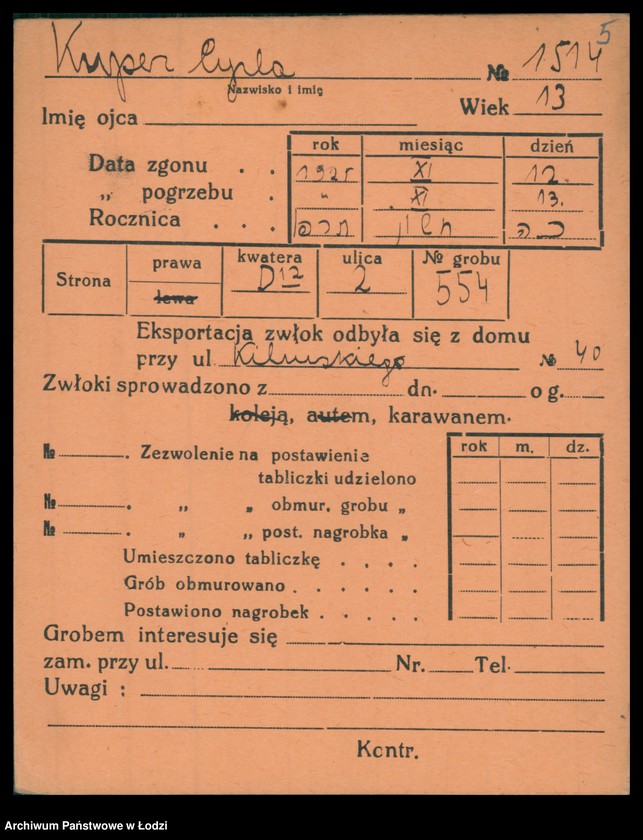 5
Kuper Cyrla № 1514
Nazwisko i imię
Wiek 13
Imię ojca
rok miesiąc dzień
Data zgonu . . 1925 XI 12.
„ pogrzebu . " XI 13.
Rocznica . . . חשון כה
Strona prawa lewa kwatera D 12 ulica 2 № grobu 554
Eksportacja zwłok odbyła się z domu
przy ul. Kilinskiego № 40
Zwłoki sprowadzono z dn. o g.
koleją, autem, karawanem.
rok m. dz.
№ . Zezwolenie na postawienie
tabliczki udzielono
№ . „ „ obmur. grobu „
№ . „ „ post. nagrobka „
Umieszczono tabliczkę . . . .
Grób obmurowano . . . . . .
Postawiono nagrobek . . . . .
Grobem interesuje się
zam. przy ul. Nr. Tel.
Uwagi :
Kontr.
Archiwum Państwowe w Łodzi